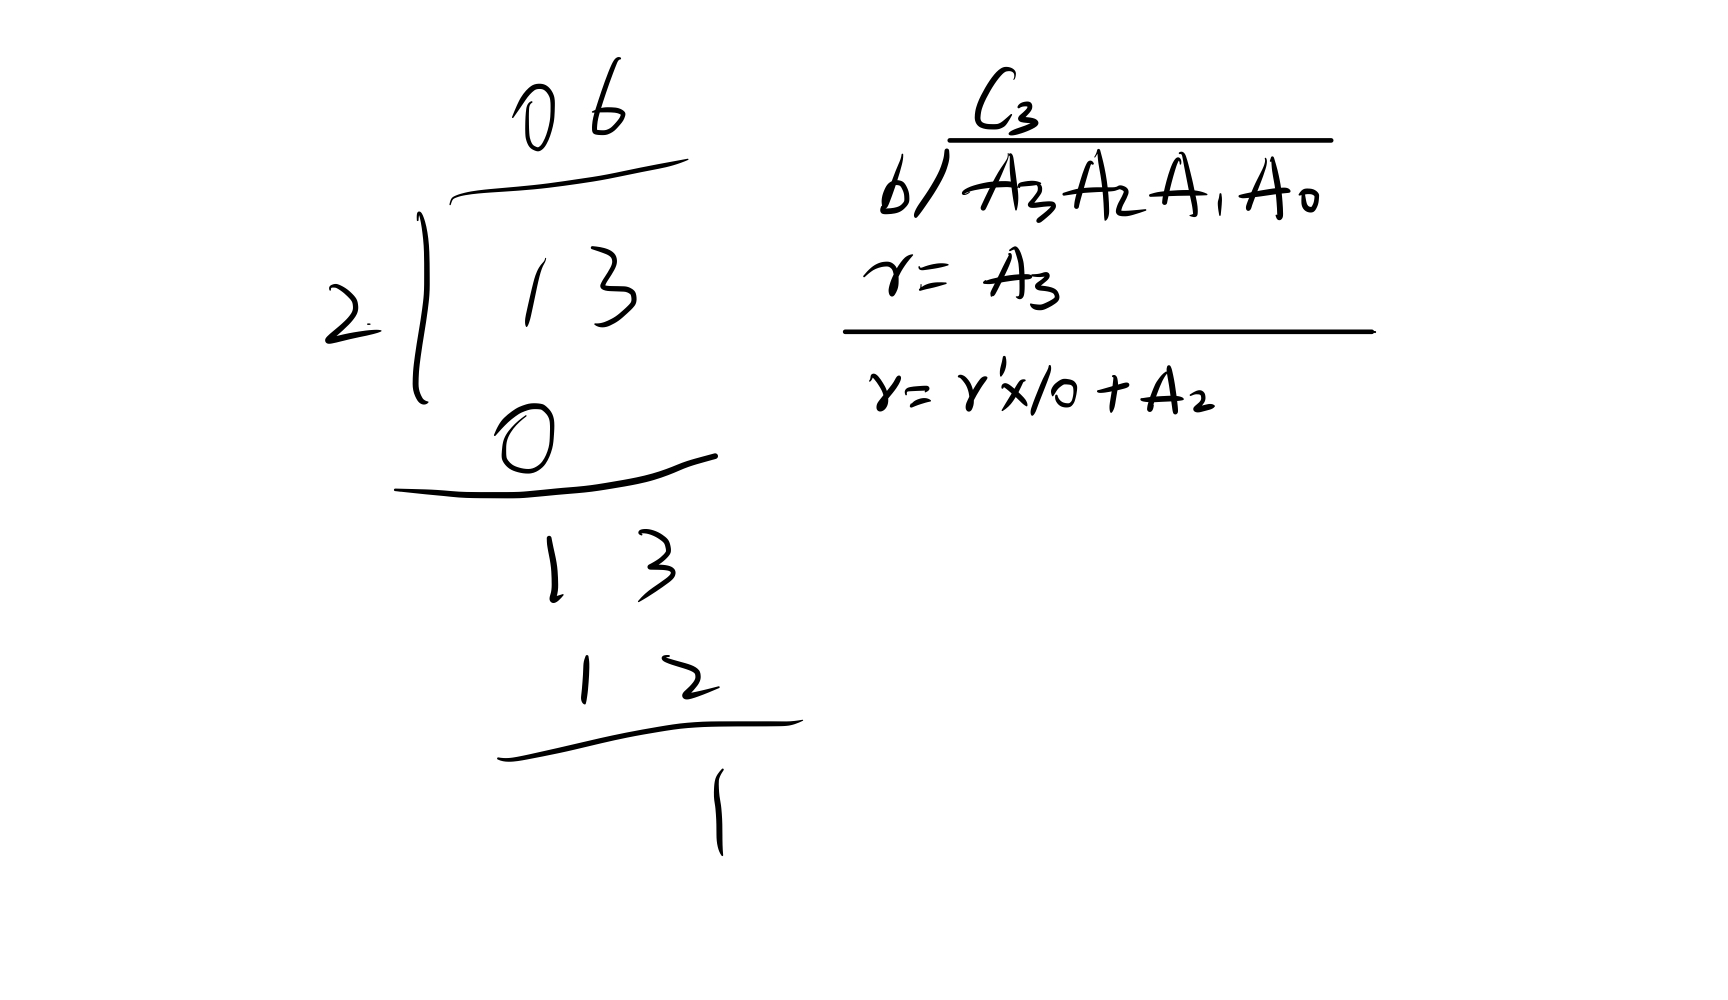 06
2 13
0
13
12
1
C₃
b/A₃A₂A₁A₀
r=A₃
r=r'x10+A₂